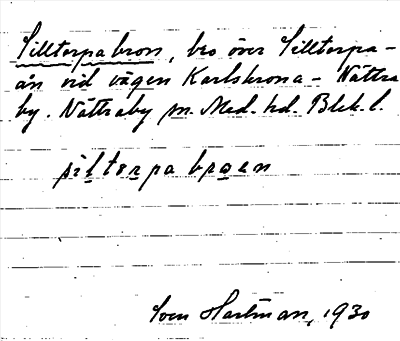 Silltorpabron, bro över Silltorpa-
ån vid vägen Karlskrona - Nättra
by. Nättraby sn. Med. hd. Blek. l.
siltorpa broen
Sven Hartman, 1930